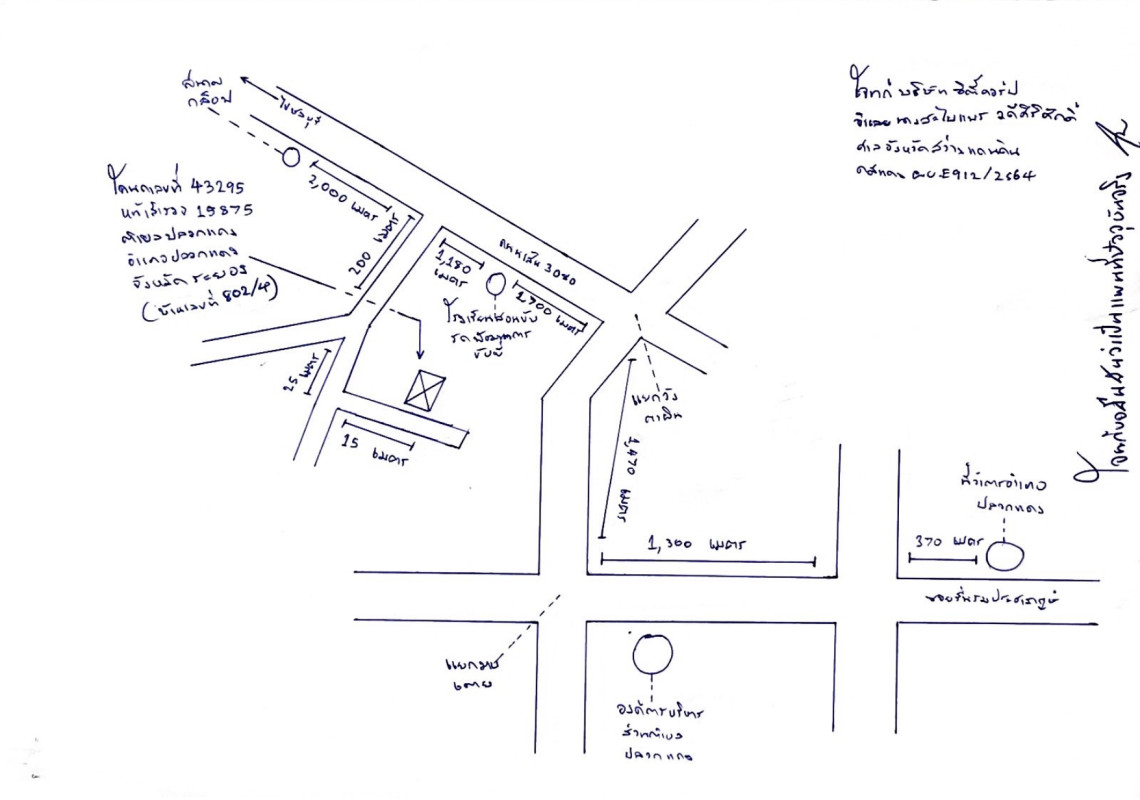 สนาม
กล็อป
ไปชลบุรี
โจทก์ บริษัท
จำเลย นางสะไบแพร
ศาลจังหวัดสว่างแดนดิน
E912/2564
โฉนดเลขที่ 43295
หน้าสำรวจ 19875
ตำบลปลวกแดง
อำเภอปลวกแดง
จังหวัด ระยอง
(บ้านเลขที่ 802/4)
2,000 เมตร
200 เมตร
ถนนเส้น
1,180
เมตร
1,700 เมตร
โรงเรียนสอนขับ
รถ
ขับขี่
25 เมตร
15 เมตร
แยกวัง
ตาผิน
1,470 เมตร
1,300 เมตร
ที่ว่าการอำเภอ
ปลวกแดง
370 เมตร
ซอย
แยก
องค์การบริหาร
ส่วนตำบล
ปลวกแดง
โจทก์ขอยืนยันว่าเป็นแผนที่ปัจจุบันจริง